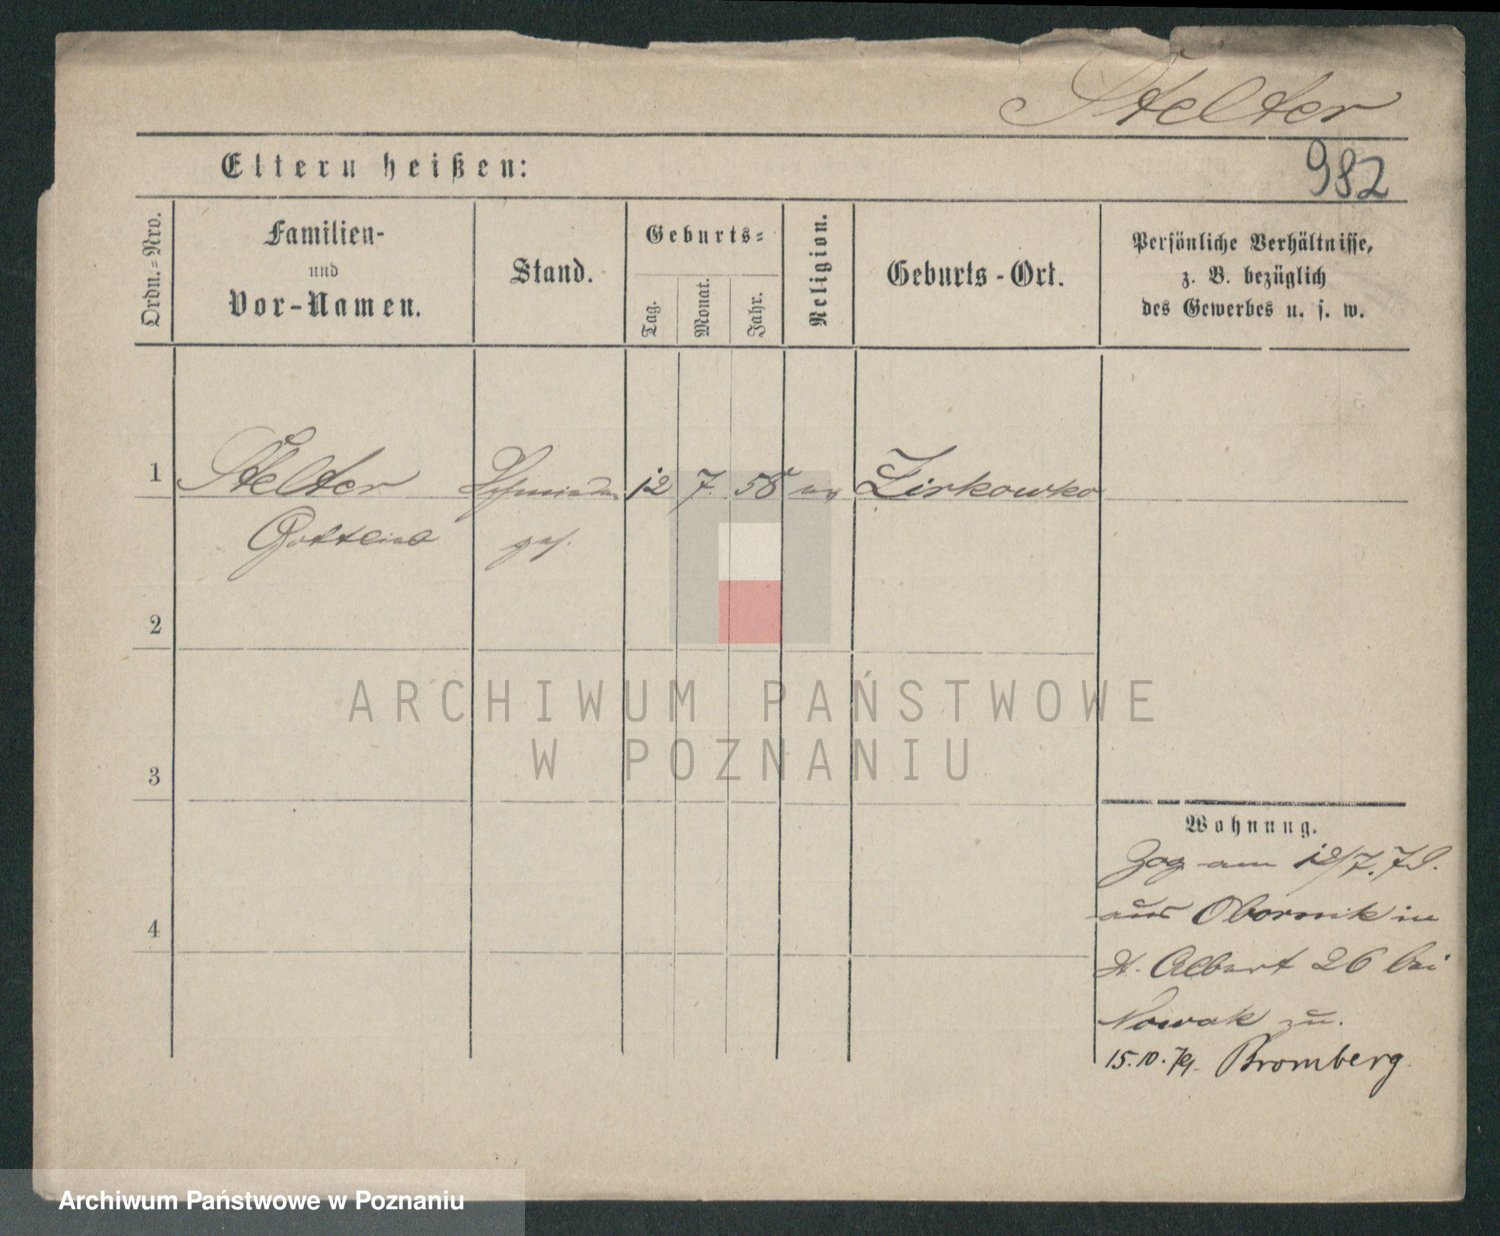 Stelter
982
Eltern heißen:
Ordn.=Nro.
Familien-
und
Vor-Namen.
Stand.
Geburts=
Tag.
Monat.
Jahr.
Religion.
Geburts-Ort.
Persönliche Verhältnisse,
z. B. bezüglich
des Gewerbes u. s. w.
1 Stelter 12 7. 58 ev Zirkowko
Gottlieb ges.
2
3
4
Wohnung.
Zog am 12/7. 78.
aus Obornik in
St. Albert 26 bei
Nowak zu.
15.10.79. Bromberg.
ARCHIWUM PAŃSTWOWE
W POZNANIU
Archiwum Państwowe w Poznaniu